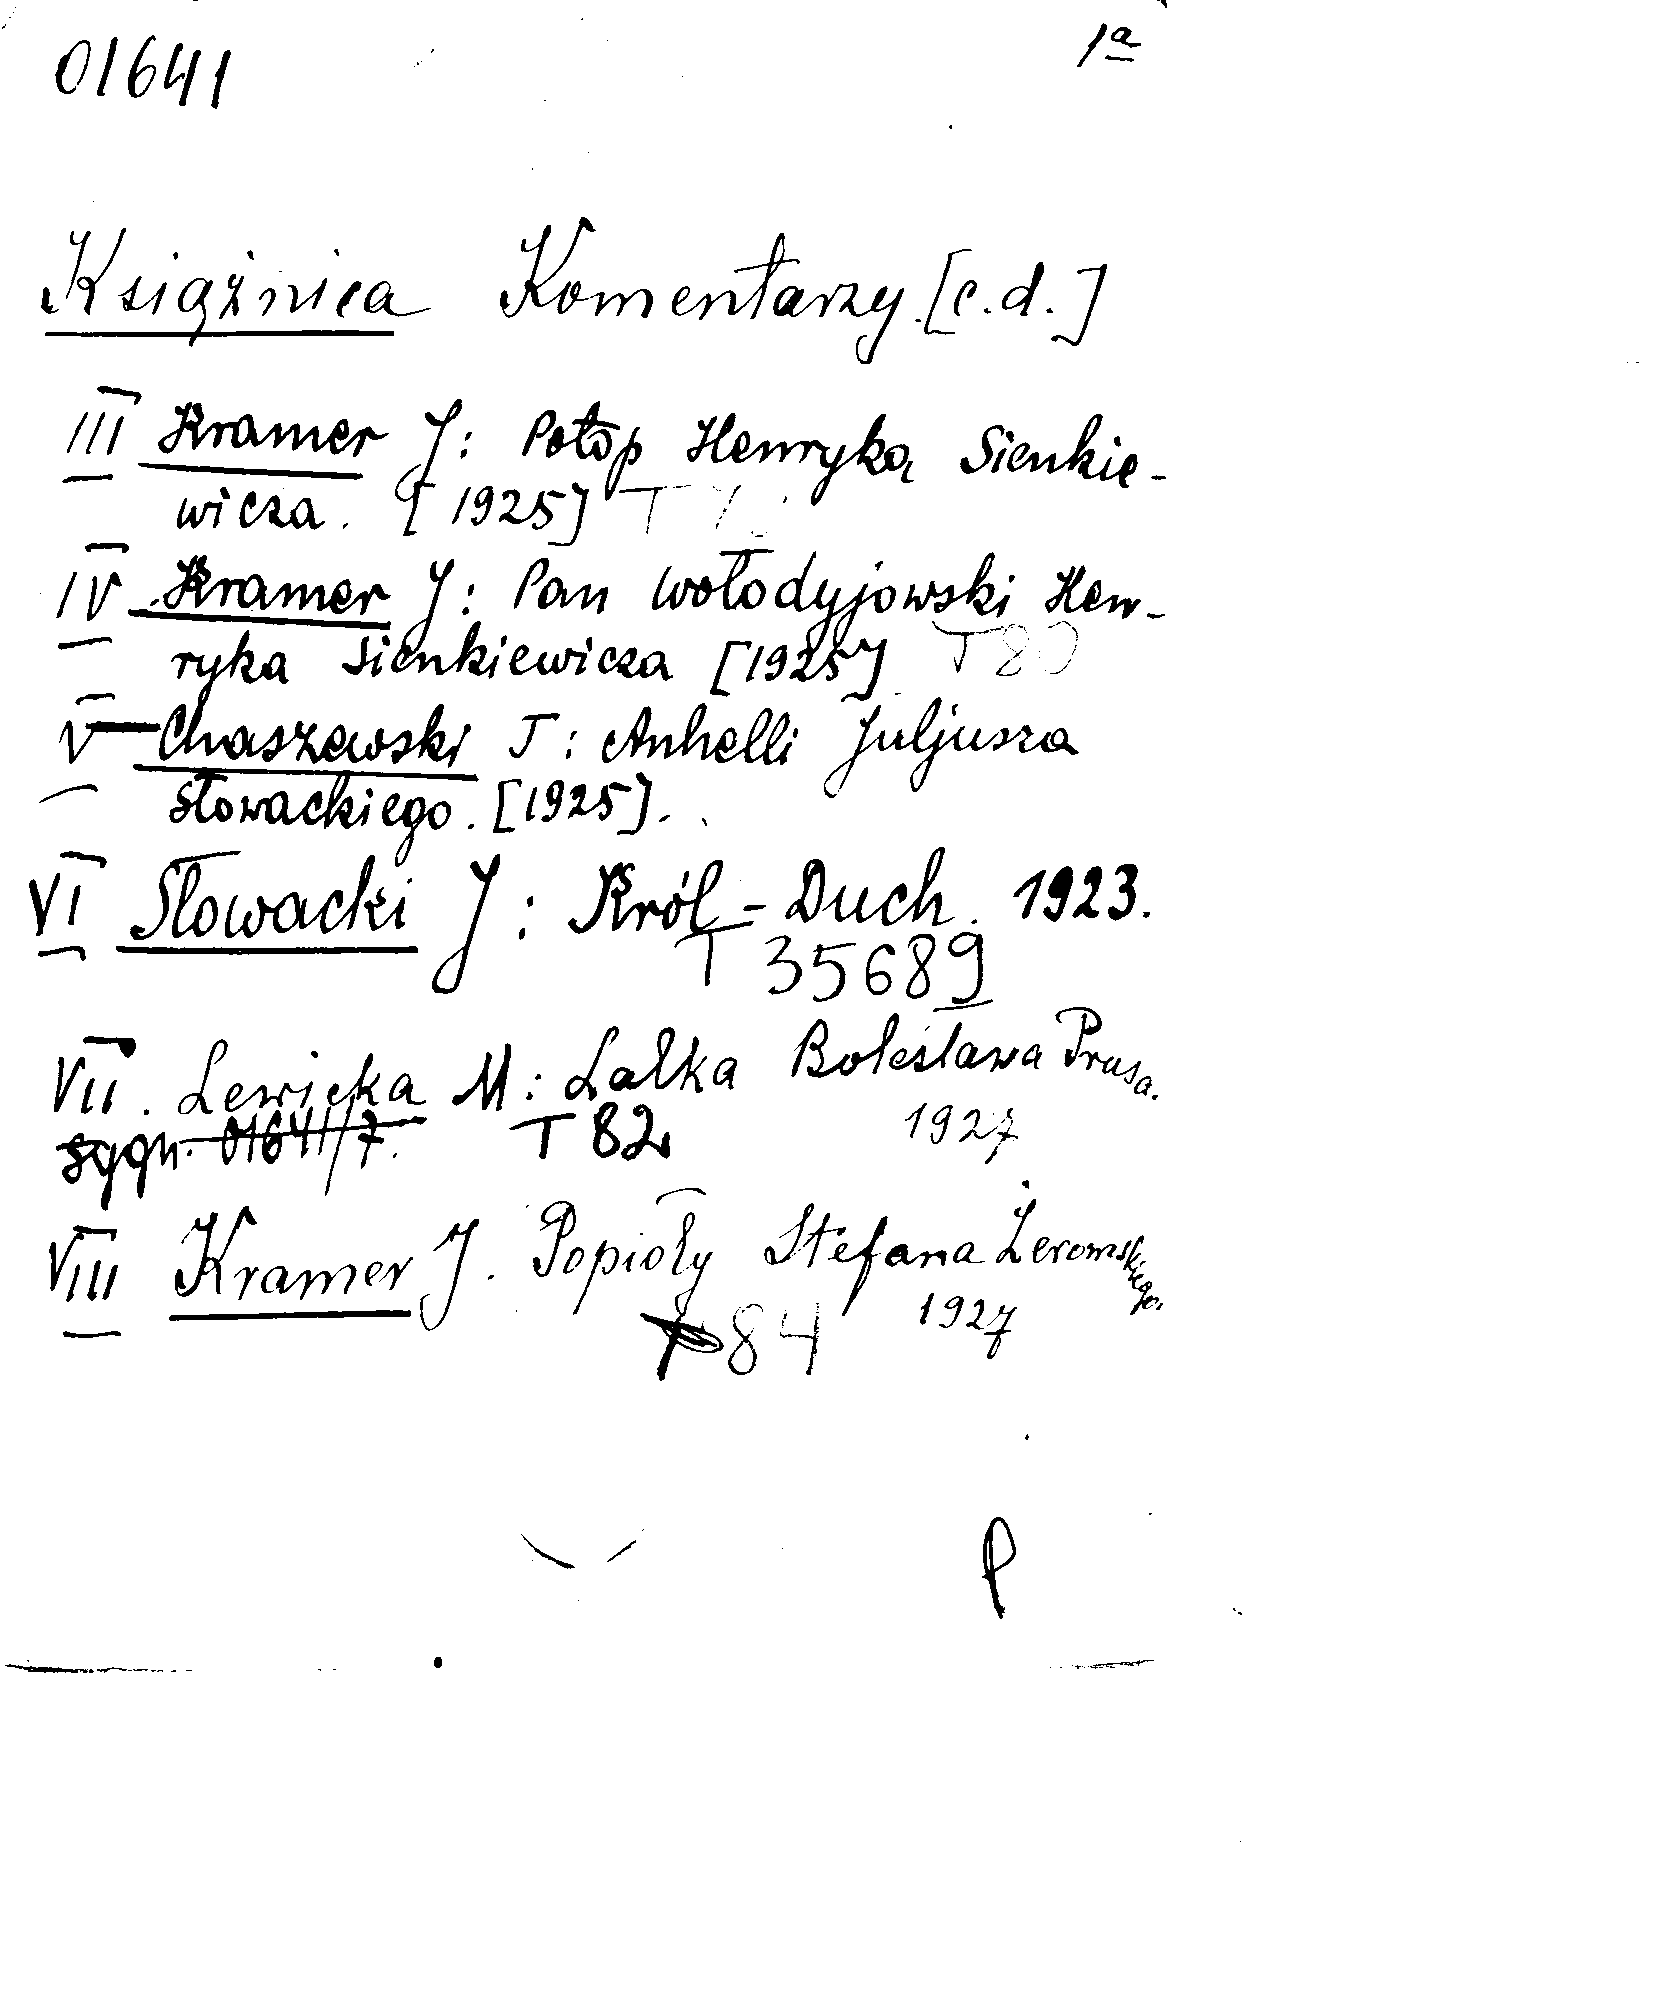 01641 1a
Książnica Komentarzy. [c.d.]
III Kramer J: Potop Henryka Sienkie-
wicza. [1925] T
IV Kramer J: Pan Wołodyjowski Hen-
ryka Sienkiewicza [1925] T 80
V Chaszewski T: Anhelli Juljusza
Słowackiego. [1925].
VI Słowacki J: Król-Duch. 1923.
T 35689
VII. Lewicka M: Lalka Bolesława Prusa.
sygn. 01641/7. T 82 1927
VIII Kramer J. Popioły Stefana Żeromskiego.
84 1927
P